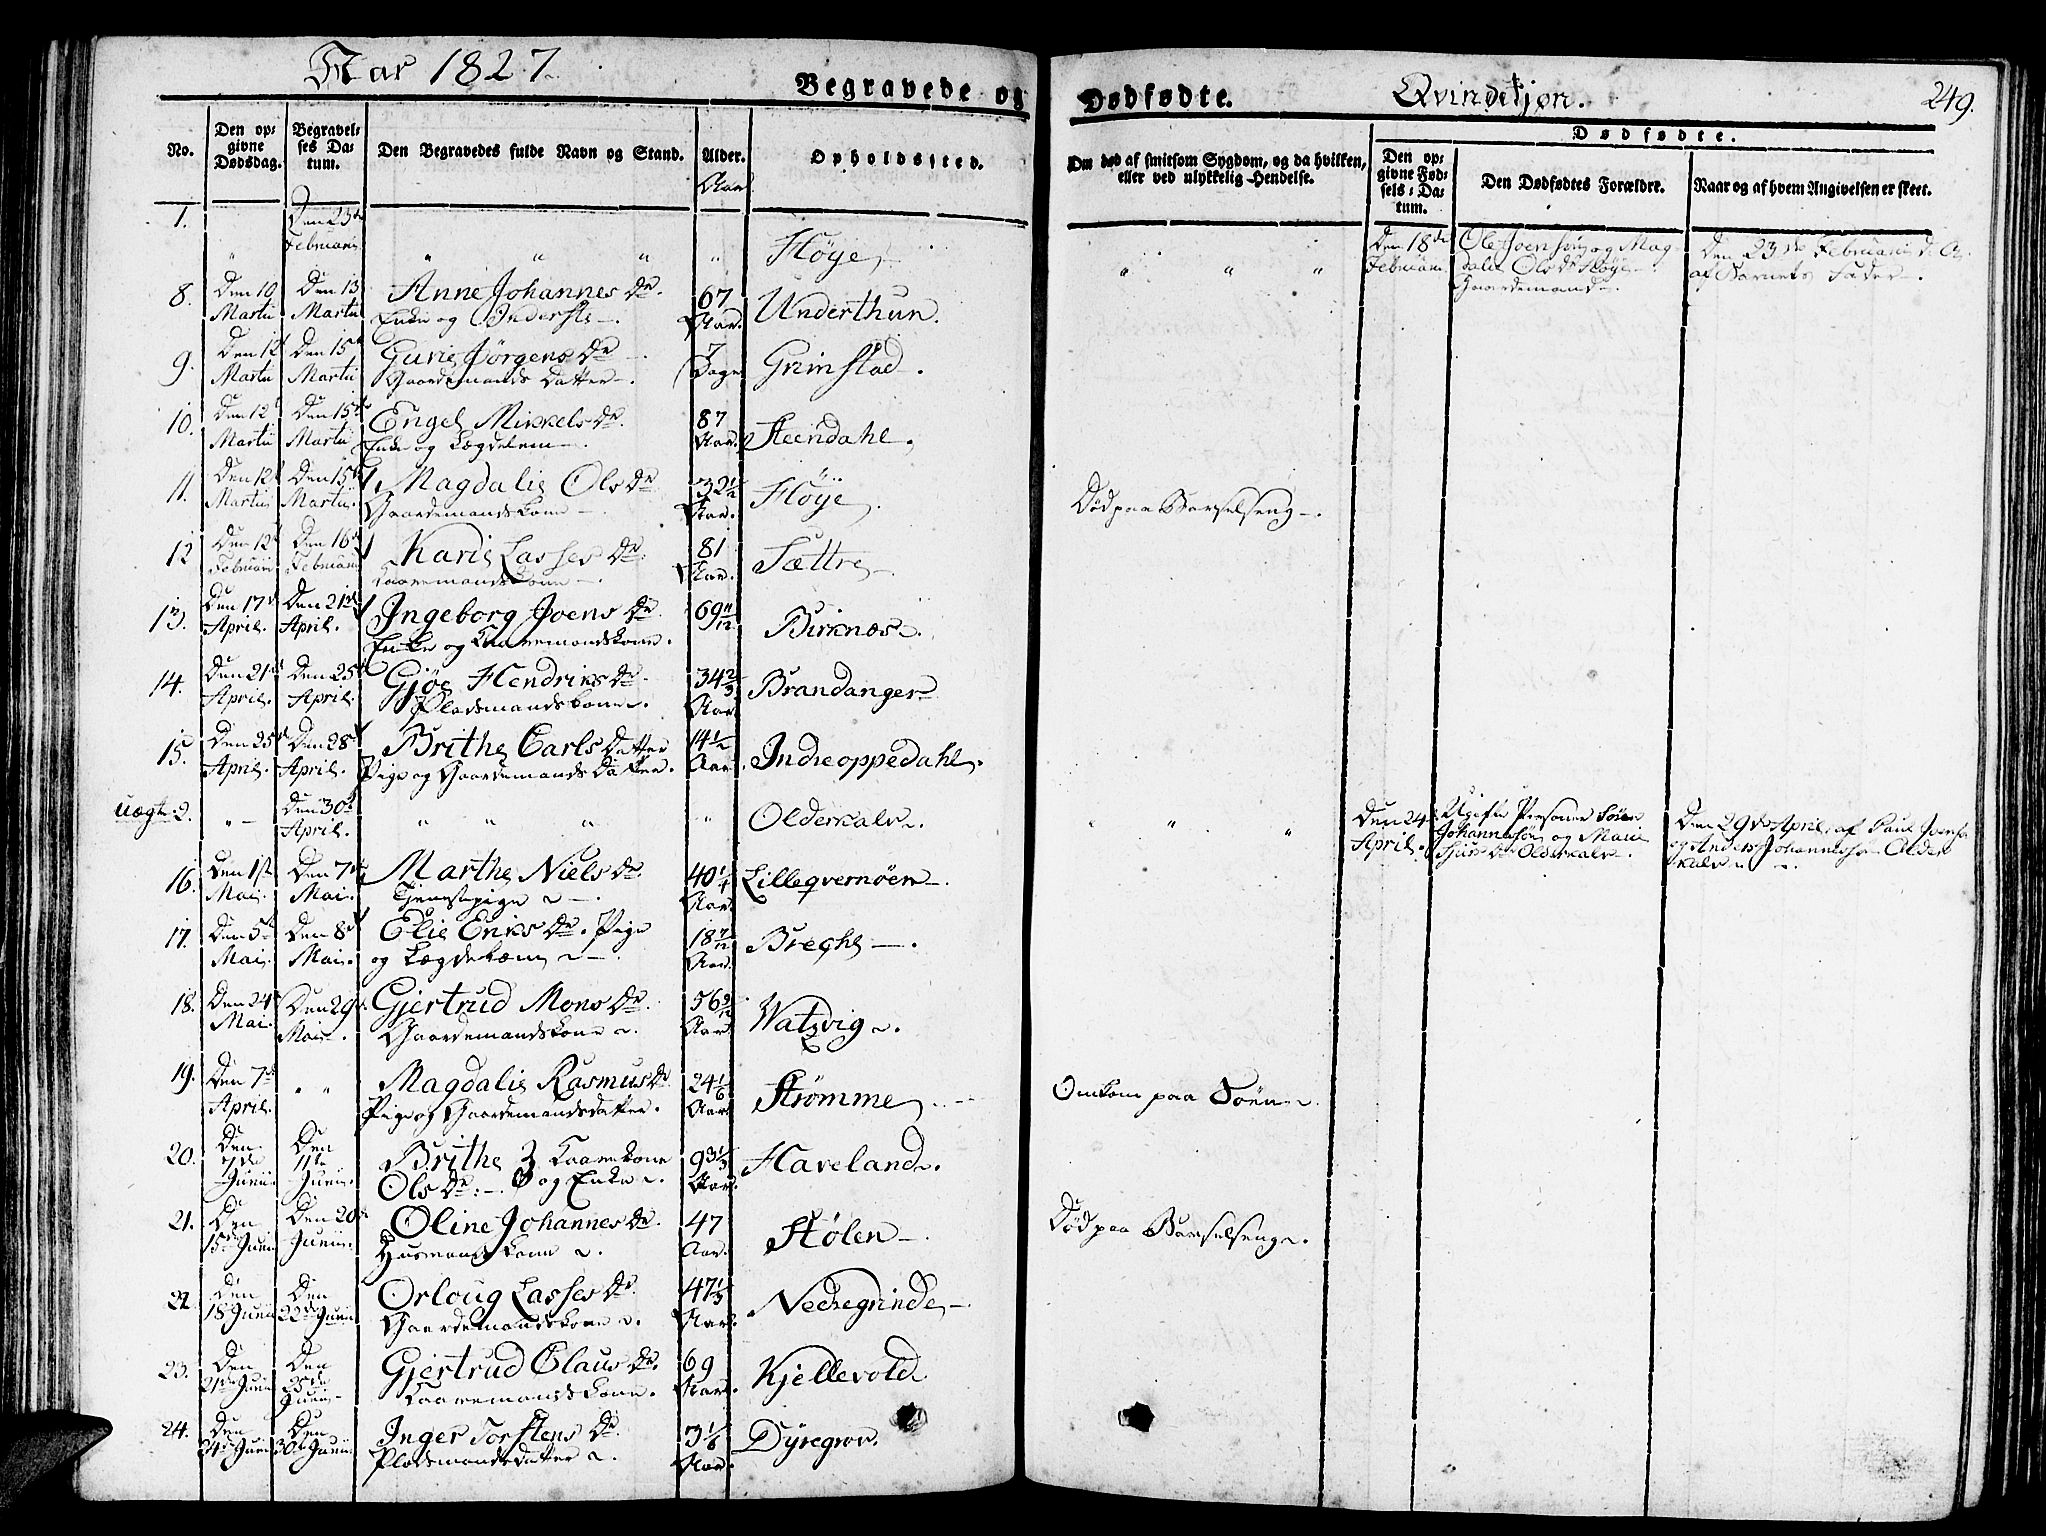 Aar 1827.
Begravede og
Dødfødte.
Qvindekjøn.
249.
No.
Den op-
givne
Dødsdag.
Begravel-
ses Da-
tum.
Den Begravedes fulde Navn og Stand.
Alder.
Aar
Opholdssted.
Om død af smitsom Sygdom, og da hvilken,
eller ved ulykkelig Hendelse.
Dødfødte.
Den op-
givne Fød-
sels-Da-
tum.
Den Dødfødtes Forældre.
Naar og af hvem Angivelsen er skeet.
1. " Den 23de
Februarii " " " " Høÿe. " " " Den 18de
Februarii Ole Joensøn og Mag-
dalie Olsdr Høÿe
Gaardemand. Den 23de Februarii d. A.
af Barnets Fader.
8. Den 10
Martii Den 13
Martii Anne Johannes Dr.
Enke og Inderste. 67
Aar. Underthun.
9. Den 12
Martii Den 15
Martii Gurie Jørgens Dr
Gaardemands Datter. 7
Dage Grimstad.
10. Den 12
Martii Den 15
Martii Engel Mikkels Dr.
Enke og Lægdelem. 87
Aar. Steendahl.
11. Den 12
Martii Den 15
Martii. Magdalie Ols Dr
Gaardemandskone. 32 1/2
Aar. Høÿe. Død paa Barselseng.
12 Den 12
Februarii Den 16
Februarii Karie Lasses Dr:
Kaaremandskone. 81
Aar. Sættre.
13. Den 17
April. Den 21de
April. Ingeborg Joens Dr
Enke og Kaaremandskone. 69 11/12 Birknæs.
14. Den 21
April. Den 25
April. Gjøe Hendriks Dr.
Pladsmandskone. 34 2/3
Aar Brandanger.
15. Den 25
April. Den 28
April. Brithe Carls Datter
Pige og Gaardemands Datter. 14 1/2
Aar. Indreoppedahl.
uægte 2. " Den 30
April. " " " " Olderkalv. " " " Den 24
April. Ugifte Personer Søren
Johannesøn og Marie
Sjurs Dr Olderkalv. Den 29de April, af Paul Joensøn
og Anders Johannesøn Older-
kalv.
16. Den 1ste
Mai. Den 7de
Mai. Marthe Niels Dr.
Tjenestepige. 40 1/4
Aar. Lilleqvernøen.
17. Den 5
Mai. Den 8
Mai. Elie Eriks Dr. Pige
og Lægdelem. 18 7/12
Aar. Breche.
18. Den 24
Mai. Den 29
Mai. Gjertrud Mons Dr.
Gaardemandskone. 56 9/12
Aar Watzvig.
19. Den 7de
April. " " Magdalie Rasmus Dr
Pige og Gaardemandsdatter. 24 1/6
Aar Strømme. Omkom paa Søen.
20. Den
7de
Junii. Den
11te
Junii. Brithe Kaarekone
Ols Dr: og Enke. 93 1/3
Aar. Haveland.
21. Den
15de Junii Den 20de
Junii. Oline Johannes Dr.
Husmandskone. 47
Aar. Stølen. Død paa Barselseng.
22. Den
18 Junii Den
22de Junii Orloug Lasses Dr.
Gaardemandskone. 47 1/3
Aar. Nedregrinde.
23. Den
21de Junii Den
25de
Junii. Gjertrud Claus Dr.
Kaaremandskone. 69
Aar. Kjellevold
24. Den
24de Junii Den
30de Junii Inger Torstens Dr.
Pladsmandsdatter. 3 1/6
Aar. Dÿregrov.